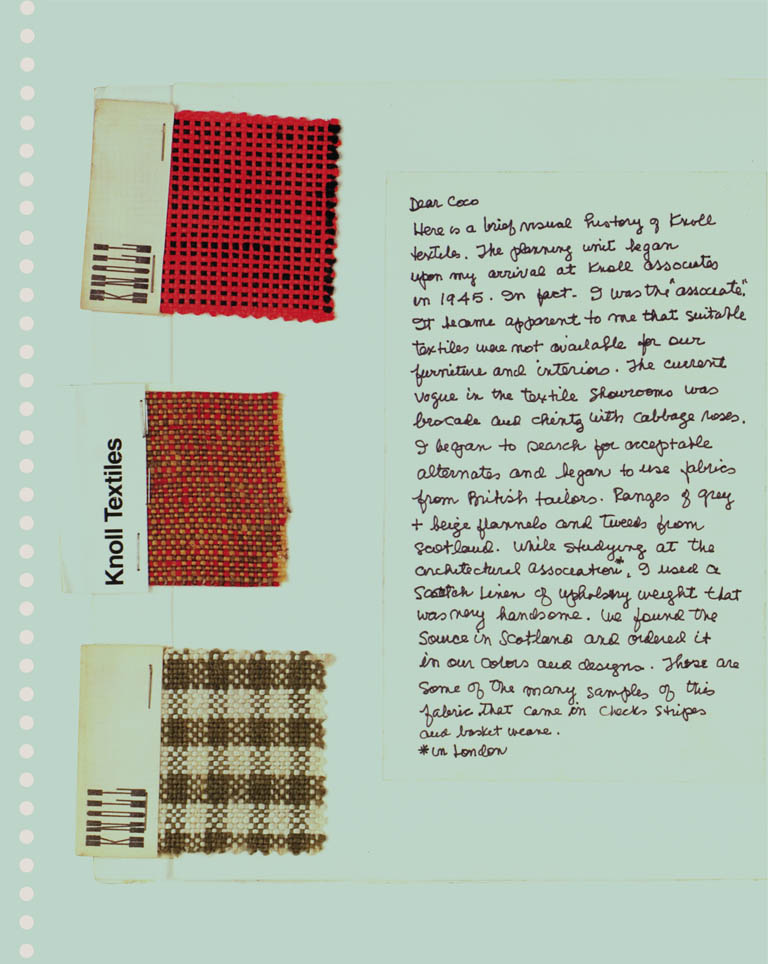 KNOLL
Knoll Textiles
KNOLL
Dear Coco
Here is a brief visual history of Knoll
textiles. The planning unit began
upon my arrival at Knoll associates
in 1945. In fact - I was the "associate".
It became apparent to me that suitable
textiles were not available for our
furniture and interiors. The current
vogue in the textile showrooms was
brocade and chintz with cabbage roses.
I began to search for acceptable
alternates and began to use fabrics
from British tailors. Ranges of grey
+ beige flannels and tweeds from
Scotland. While studying at the
architectural association*, I used a
Scotch linen of upholstry weight that
was very handsome. We found the
source in Scotland and ordered it
in our colors and designs. These are
some of the many samples of this
fabric that came in checks stripes
and basket weave.
*in London